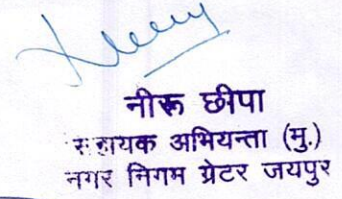 नीरू छीपा
सहायक अभियन्ता (मु.)
नगर निगम ग्रेटर जयपुर